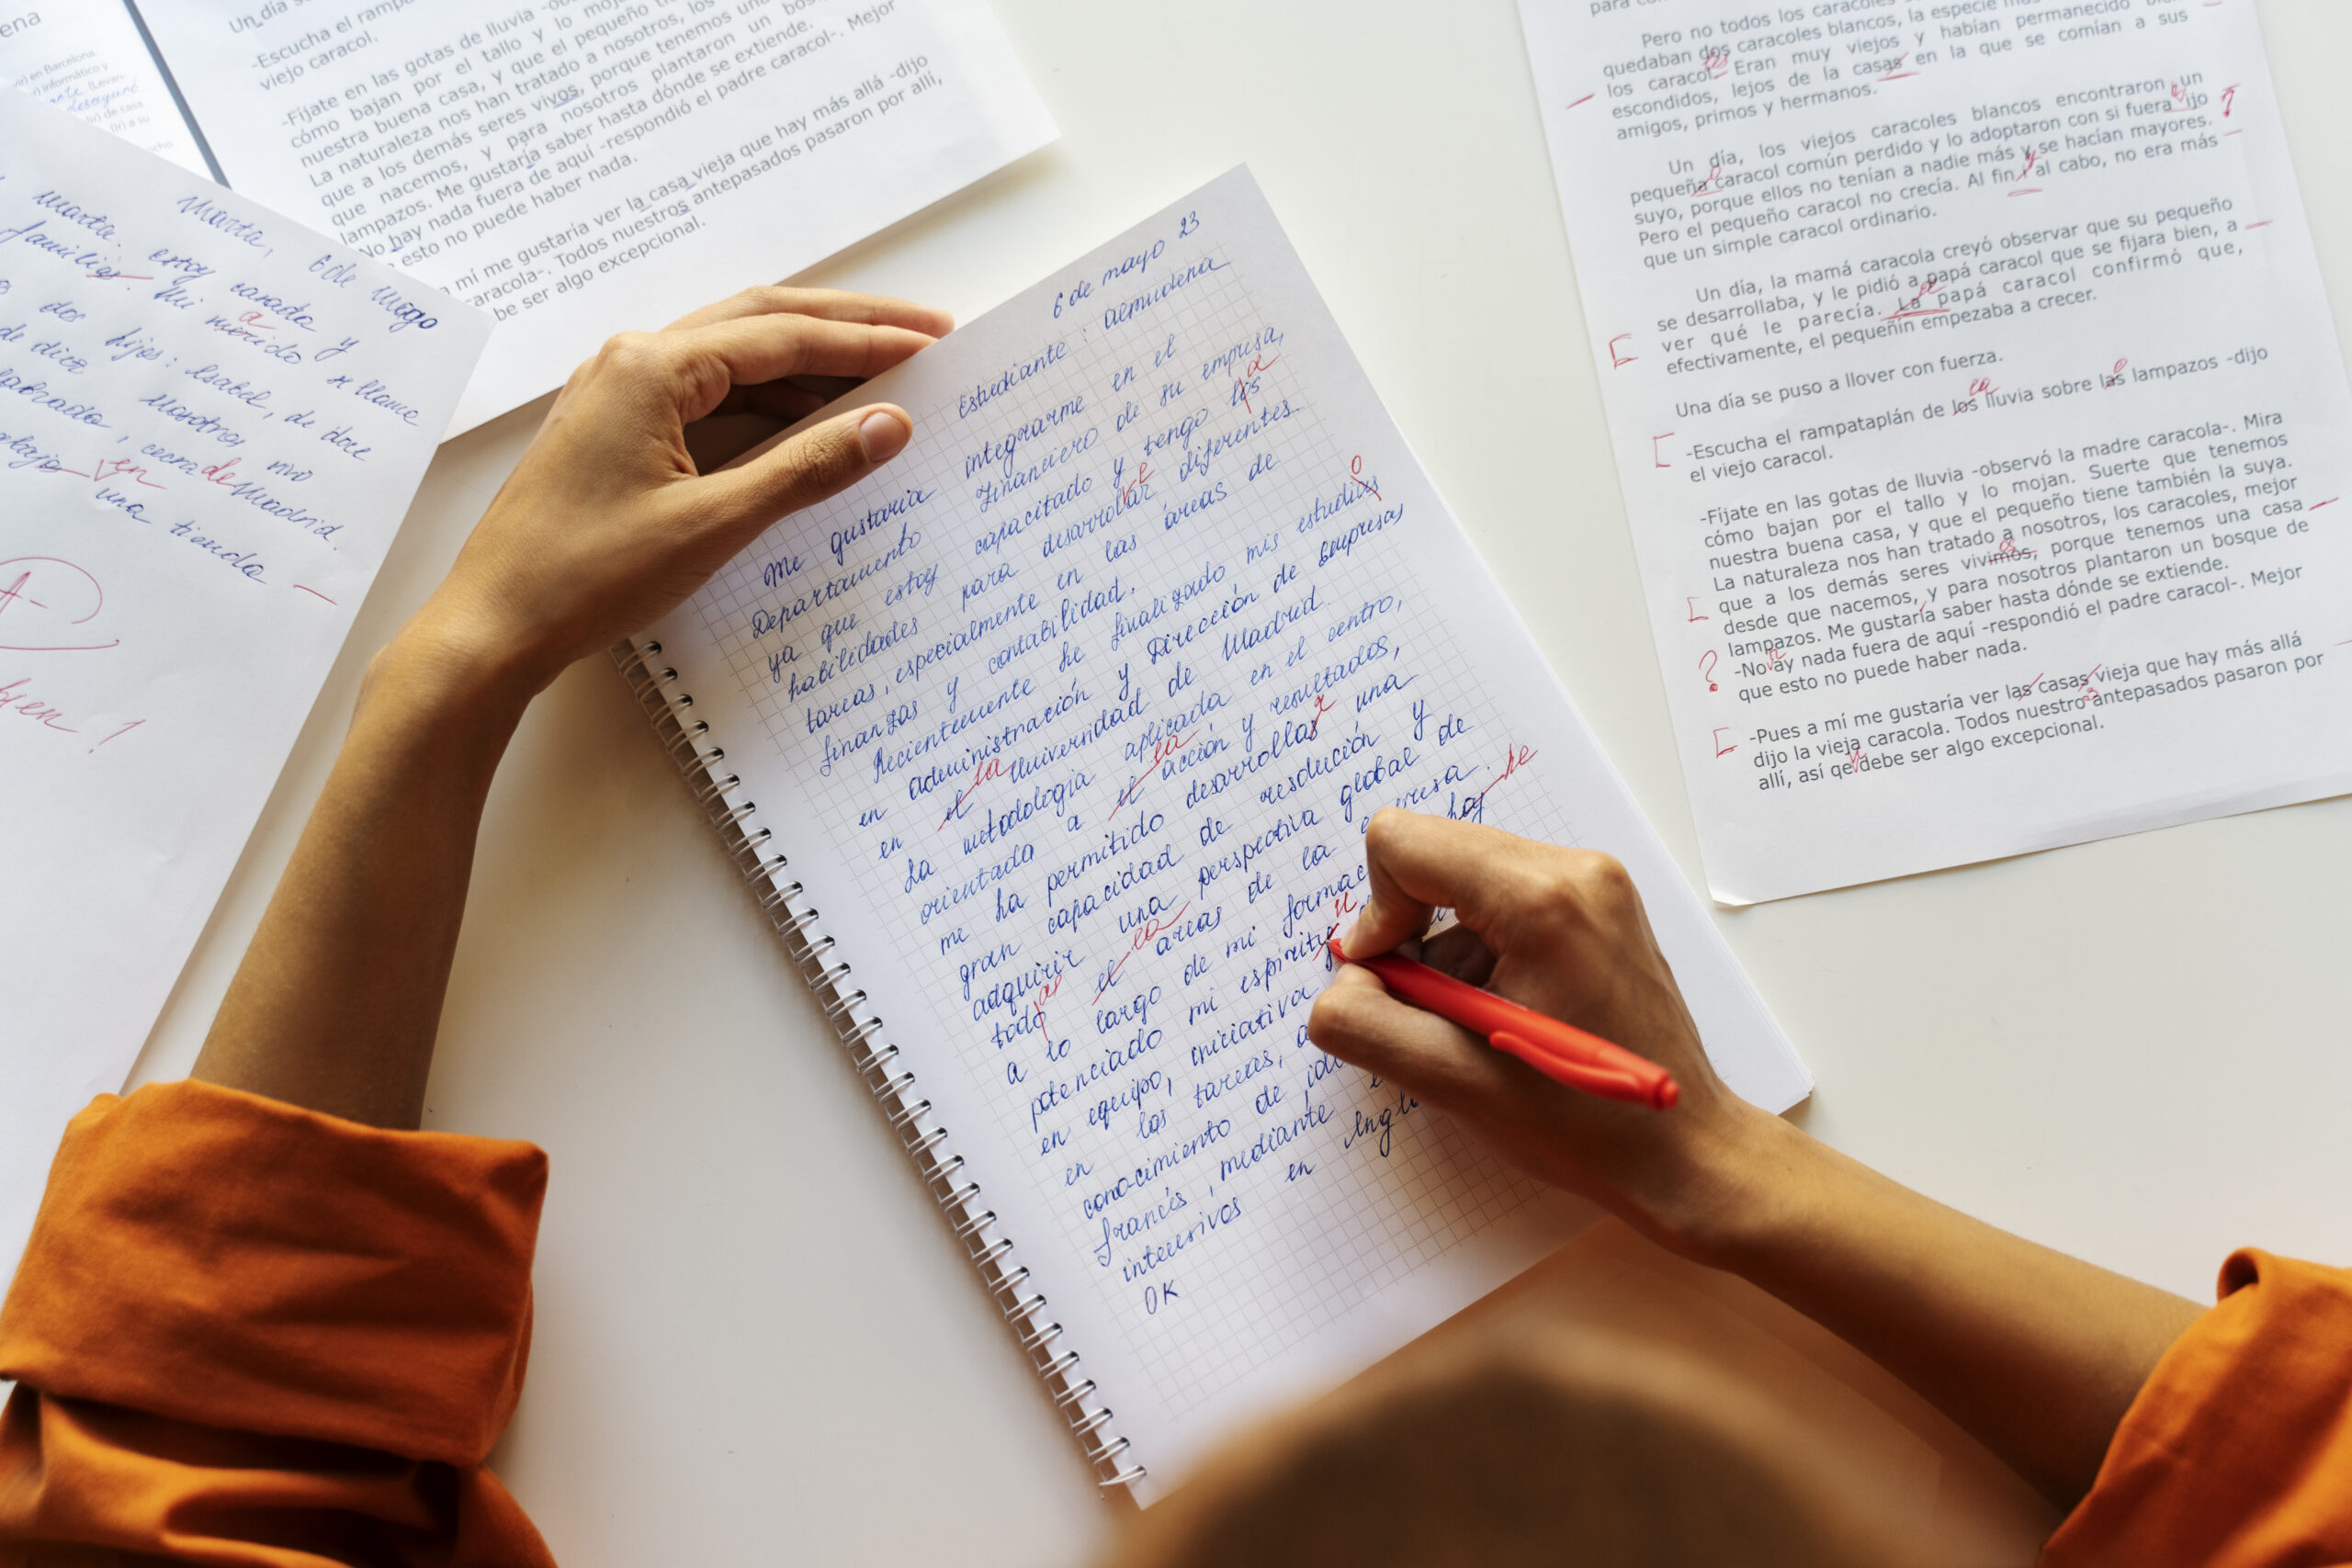 ena
vir) en Barcelona
vir) informático y
ante. (Levan-
desayuné
(ir) de casa
(ir) a su
ocho
Un día s
-Escucha el rampa
viejo caracol.
-Fíjate en las gotas de lluvia -ob
cómo bajan por el tallo y lo moja
nuestra buena casa, y que el pequeño
La naturaleza nos han tratado a nosotros, los
que a los demás seres vivos, porque tenemos una
que nacemos, y para nosotros plantaron un bosq
lampazos. Me gustaría saber hasta dónde se extiende.
-No hay nada fuera de aquí -respondió el padre caracol-. Mejor
esto no puede haber nada.
a mí me gustaría ver la casa vieja que hay más allá -dijo
caracola-. Todos nuestros antepasados pasaron por allí,
be ser algo excepcional.
Marta, 6 de mayo
Marta. estoy casada y
familiar. Mi marido se llama
a
dos hijos: Isabel, de doce
de diez nosotros vivo
cerca de Madrid.
en una tienda
A-
bien!
6 de mayo 23
Estudiante: Almudena
Me gustaria integrarme en el
Departamento Financiero de su empresa,
ya que estoy capacitado y tengo los
a
habilidades para desarrollar diferentes
tareas, especialmente en las áreas de
finanzas y contabilidad.
Recientemente he finalizado mis estudias
o
en administración y Dirección de Empresas
en el la Universidad de Madrid.
La metodologia aplicada en el centro,
orientada a el la acción y resultados,
me ha permitido desarrollas una
r
gran capacidad de resolución y
adquirir una perspectiva global de
todo as el la areas de la empresa.
a lo largo de mi formac hay he
potenciado mi espiritu
u
en equipo, iniciativa
en las tareas, a
conocimiento de idi
francés, mediante e
intensivos en Ingl
OK
para co
Pero no todos los caracoles
quedaban dos caracoles blancos, la especie más
los caracol. Eran muy viejos y habían permanecido
escondidos, lejos de la casas en la que se comían a sus
amigos, primos y hermanos.
Un día, los viejos caracoles blancos encontraron un
pequeña caracol común perdido y lo adoptaron con si fuera ijo
o
?
suyo, porque ellos no tenían a nadie más y se hacían mayores.
Pero el pequeño caracol no crecía. Al fin y al cabo, no era más
que un simple caracol ordinario.
Un día, la mamá caracola creyó observar que su pequeño
se desarrollaba, y le pidió a papá caracol que se fijara bien, a
ver qué le parecía. La papá caracol confirmó que,
efectivamente, el pequeñín empezaba a crecer.
Una día se puso a llover con fuerza.
-Escucha el rampataplán de los lluvia sobre las lampazos -dijo
la
o
el viejo caracol.
-Fíjate en las gotas de lluvia -observó la madre caracola-. Mira
cómo bajan por el tallo y lo mojan. Suerte que tenemos
nuestra buena casa, y que el pequeño tiene también la suya.
La naturaleza nos han tratado a nosotros, los caracoles, mejor
que a los demás seres vivimos, porque tenemos una casa
os
desde que nacemos, y para nosotros plantaron un bosque de
lampazos. Me gustaría saber hasta dónde se extiende.
? -No ay nada fuera de aquí -respondió el padre caracol-. Mejor
que esto no puede haber nada.
-Pues a mí me gustaría ver las casas vieja que hay más allá
dijo la vieja caracola. Todos nuestro antepasados pasaron por
s
allí, así qe debe ser algo excepcional.